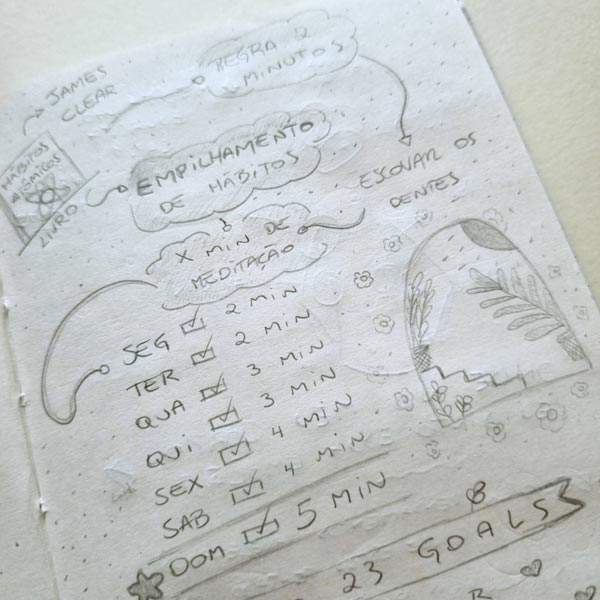 JAMES
CLEAR
REGRA 2
MINUTOS
HÁBITOS
ATÔMICOS
LIVRO
EMPILHAMENTO
DE HÁBITOS
ESCOVAR OS
DENTES
X MIN DE
MEDITAÇÃO
SEG ☑ 2 MIN
TER ☑ 2 MIN
QUA ☑ 3 MIN
QUI ☑ 3 MIN
SEX ☑ 4 MIN
SAB ☑ 4 MIN
DOM ☑ 5 MIN
23 GOALS